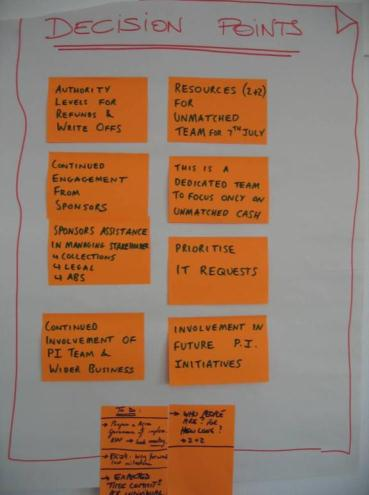 DECISION POINTS
AUTHORITY
LEVELS FOR
REFUNDS &
WRITE OFFS
RESOURCES (2+2)
FOR
UNMATCHED
TEAM FOR 7TH JULY
CONTINUED
ENGAGEMENT
FROM
SPONSORS
THIS IS A
DEDICATED TEAM
TO FOCUS ONLY ON
UNMATCHED CASH
SPONSORS ASSISTANCE
IN MANAGING STAKEHOLDER
↳ COLLECTIONS
↳ LEGAL
↳ ABS
PRIORITISE
IT REQUESTS
CONTINUED
INVOLVEMENT OF
PI TEAM &
WIDER BUSINESS
INVOLVEMENT IN
FUTURE P.I.
INITIATIVES
TO DO:
→ WHO PEOPLE
ARE? FOR
HOW LONG?
→ 2+2
→ EXPECTED
TIME COMMIT?